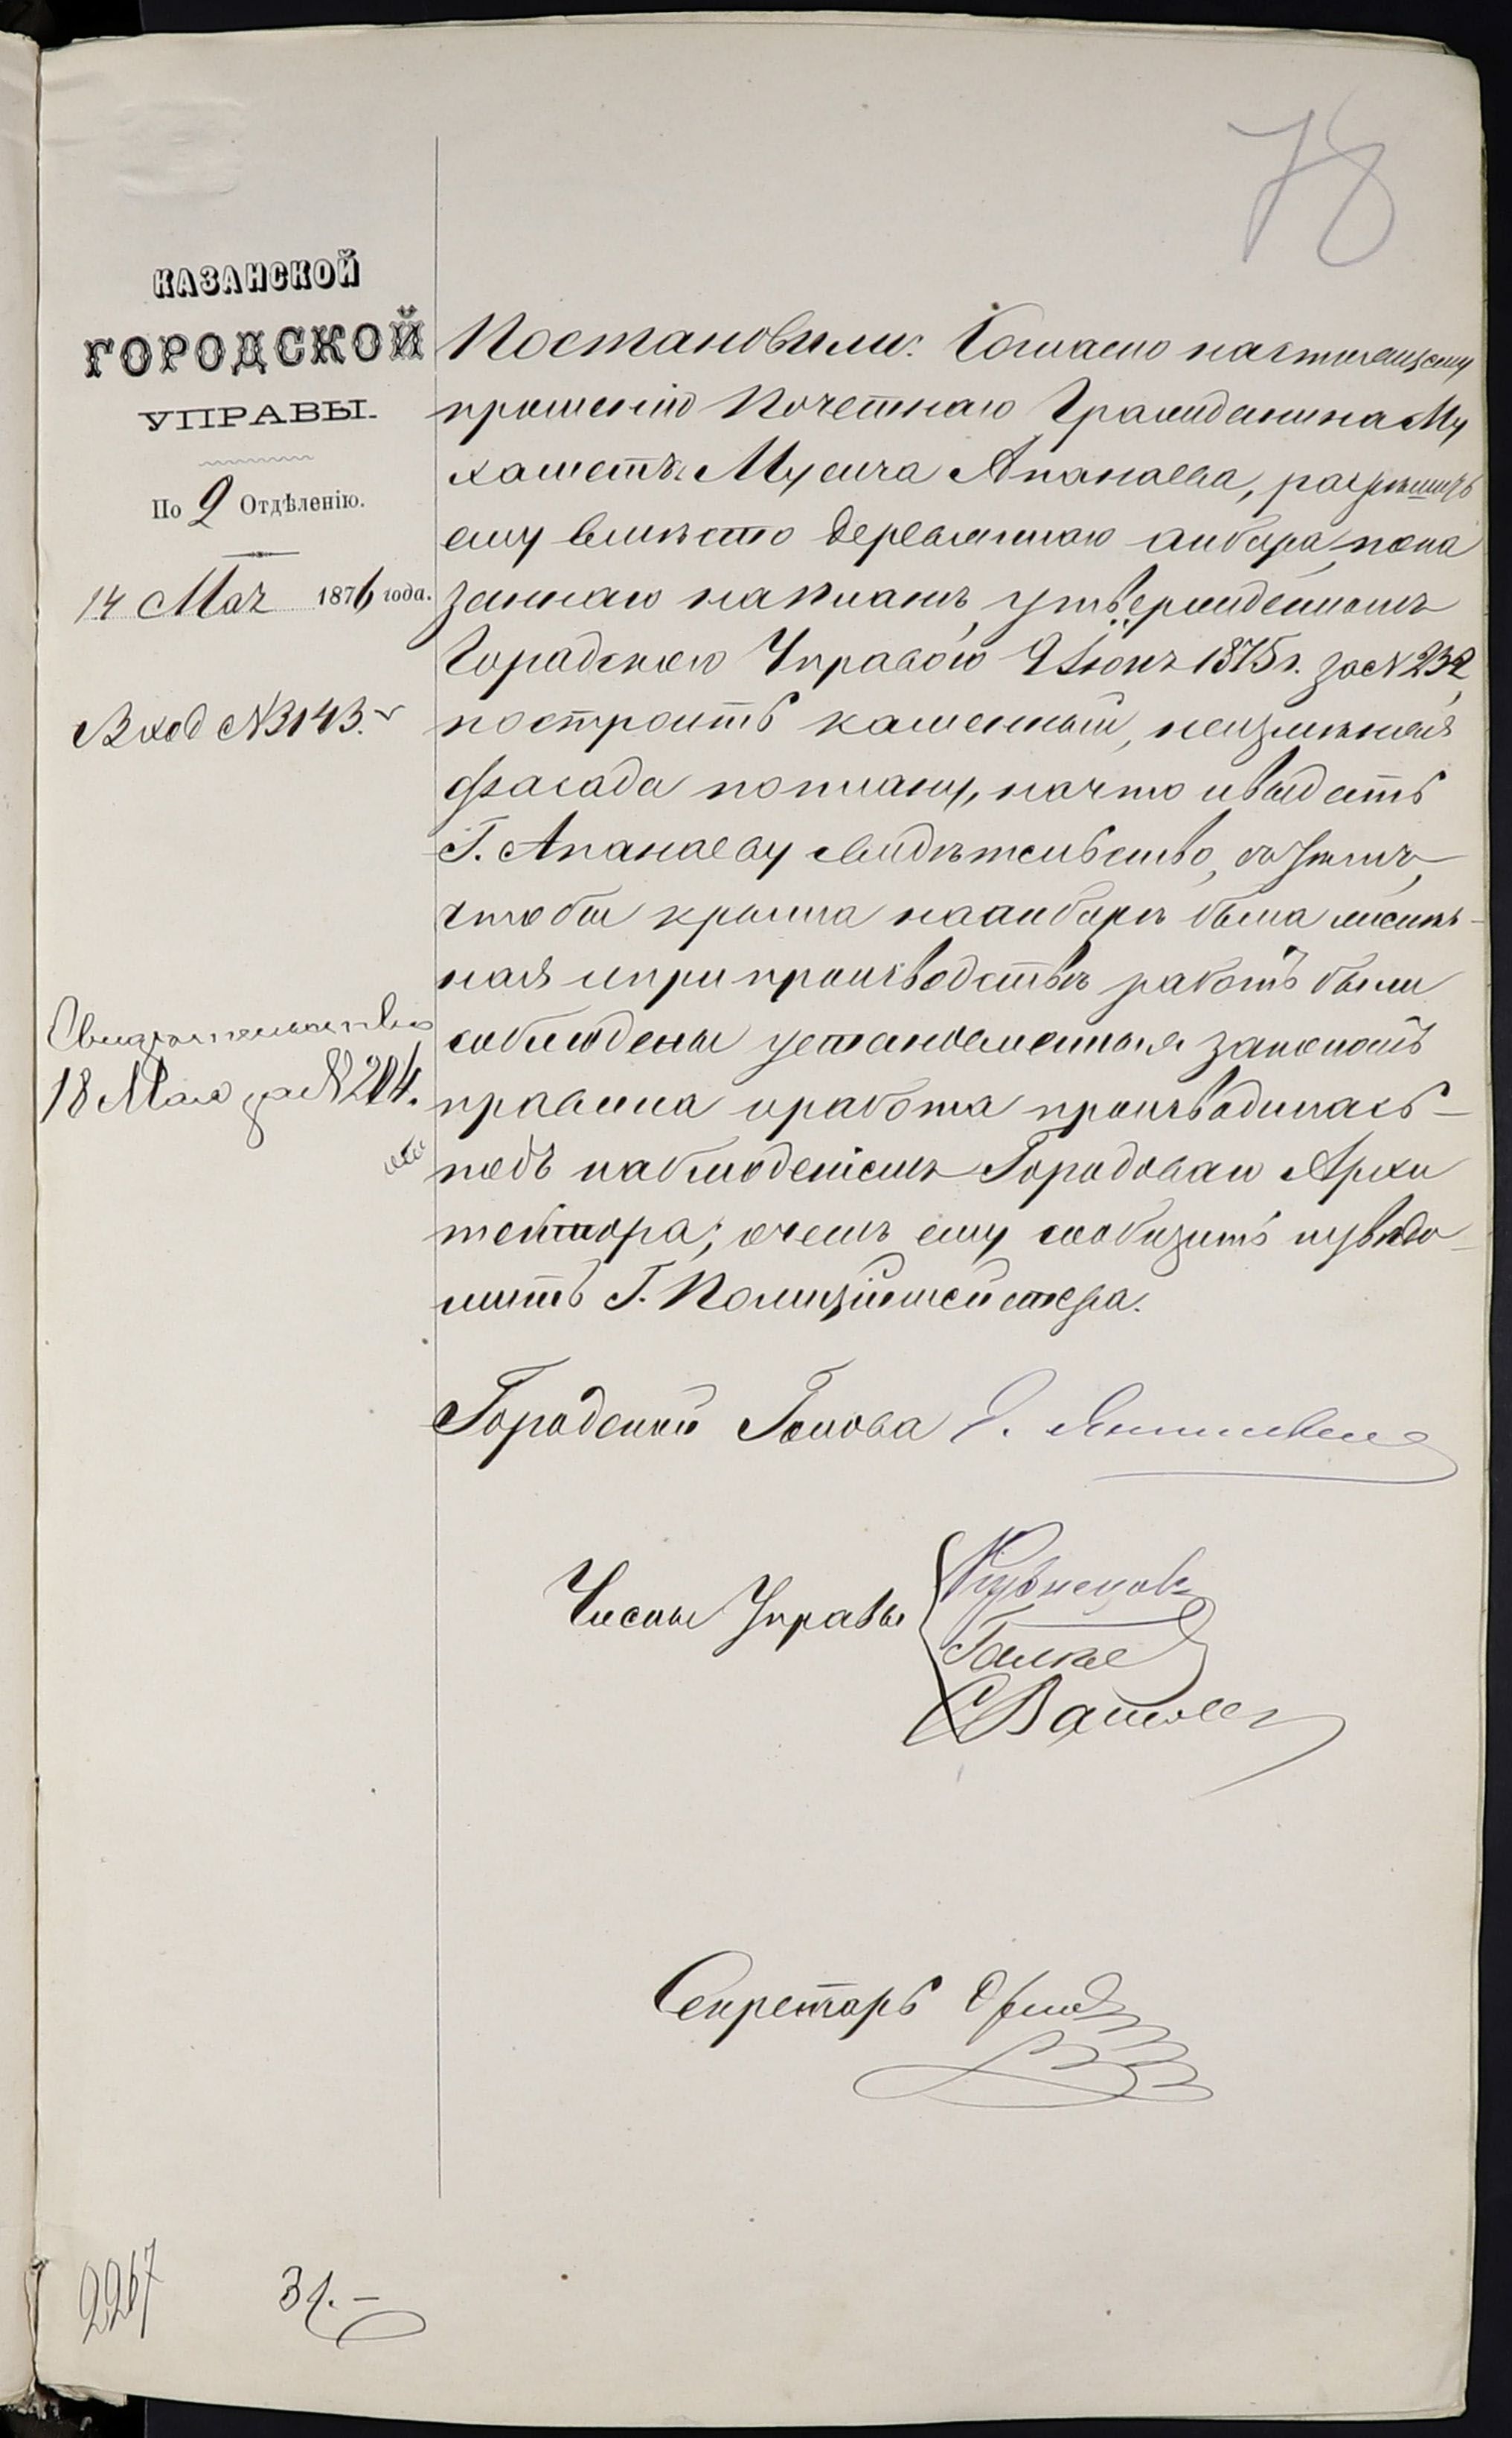 78
КАЗАНСКОЙ
ГОРОДСКОЙ
УПРАВЫ.
По 2 Отдѣленію.
14 Мая 1876 года.
Вход №3143.
Свидѣтельство
18 Мая за №204.
Постановили: Согласно настоящему
прошенію Почетнаго Гражданина Му
хаметъ Мусича Апанаева, разрѣшить
ему вмѣсто деревяннаго анбара, пока
заннаго на планѣ, утвержденномъ
Городскою Управою 9 Іюня 1875 г. за №232,
построить каменный, неизмѣняя
фасада по плану, на что и выдать
Г. Апанаеву свидѣтельство, съ тѣмъ,
чтобы крыша на анбарѣ была желѣз-
ная и при производствѣ работъ были
соблюдены установленныя закономъ
правила и работа производилась
подъ наблюденіемъ Городоваго Архи
тектора; о чемъ ему сообщить и увѣдо-
мить Г. Полиціймейстера.
Городской Голова Э. Янишевскій
Члены Управы
Кузнецовъ
Галкинъ
Секретарь
2267
31.-